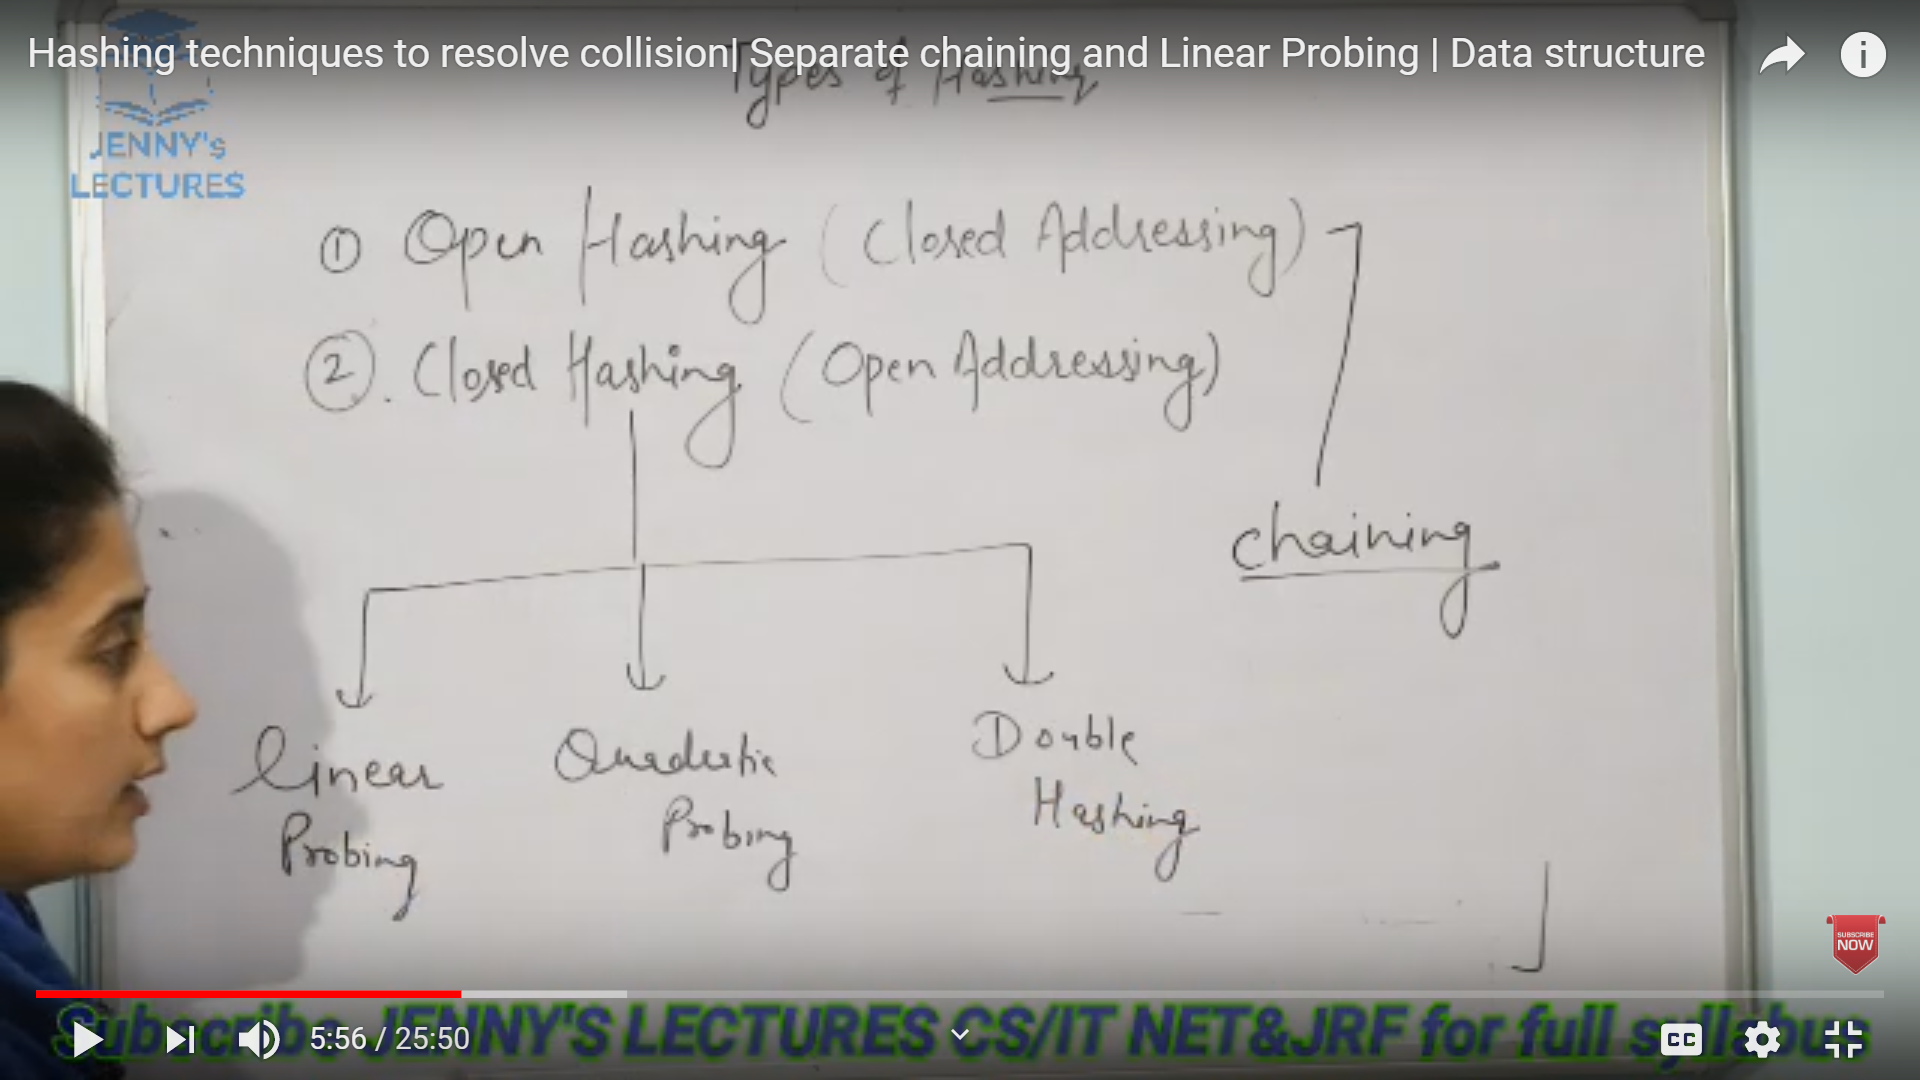 Hashing techniques to resolve collision| Separate chaining and Linear Probing | Data structure
Types of Hashing
JENNY's
LECTURES
① Open Hashing (Closed Addressing)
②. Closed Hashing (Open Addressing)
chaining
Linear
Probing
Quadratic
Probing
Double
Hashing
SUBSCRIBE
NOW
Subscribe JENNY'S LECTURES CS/IT NET&JRF for full syllabus
5:56 / 25:50
CC